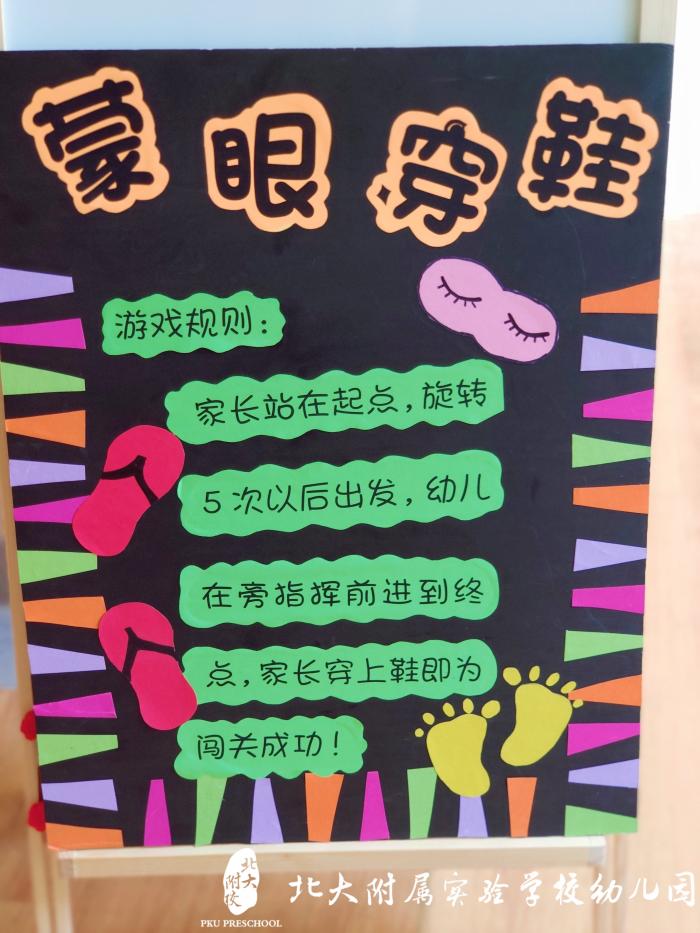 蒙眼穿鞋
游戏规则：
家长站在起点，旋转
5次以后出发，幼儿
在旁指挥前进到终
点，家长穿上鞋即为
闯关成功！
北大附校
PKU PRESCHOOL
北大附属实验学校幼儿园